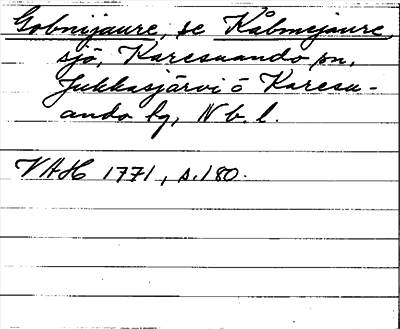 Gobnijaure, se Kåbmejaure,
sjö, Karesuando sn,
Jukkasjärvi o Karesu-
ando lg, Nb. l.
VAH 1771, s. 180.